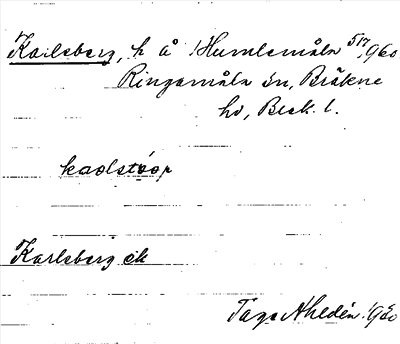 Karlsberg, h å Humlemåla 5/7, 960
Ringamåla sn, Bräkne
hd, Blek. l.
Karlsberg ek
Tage Ahldén 1960